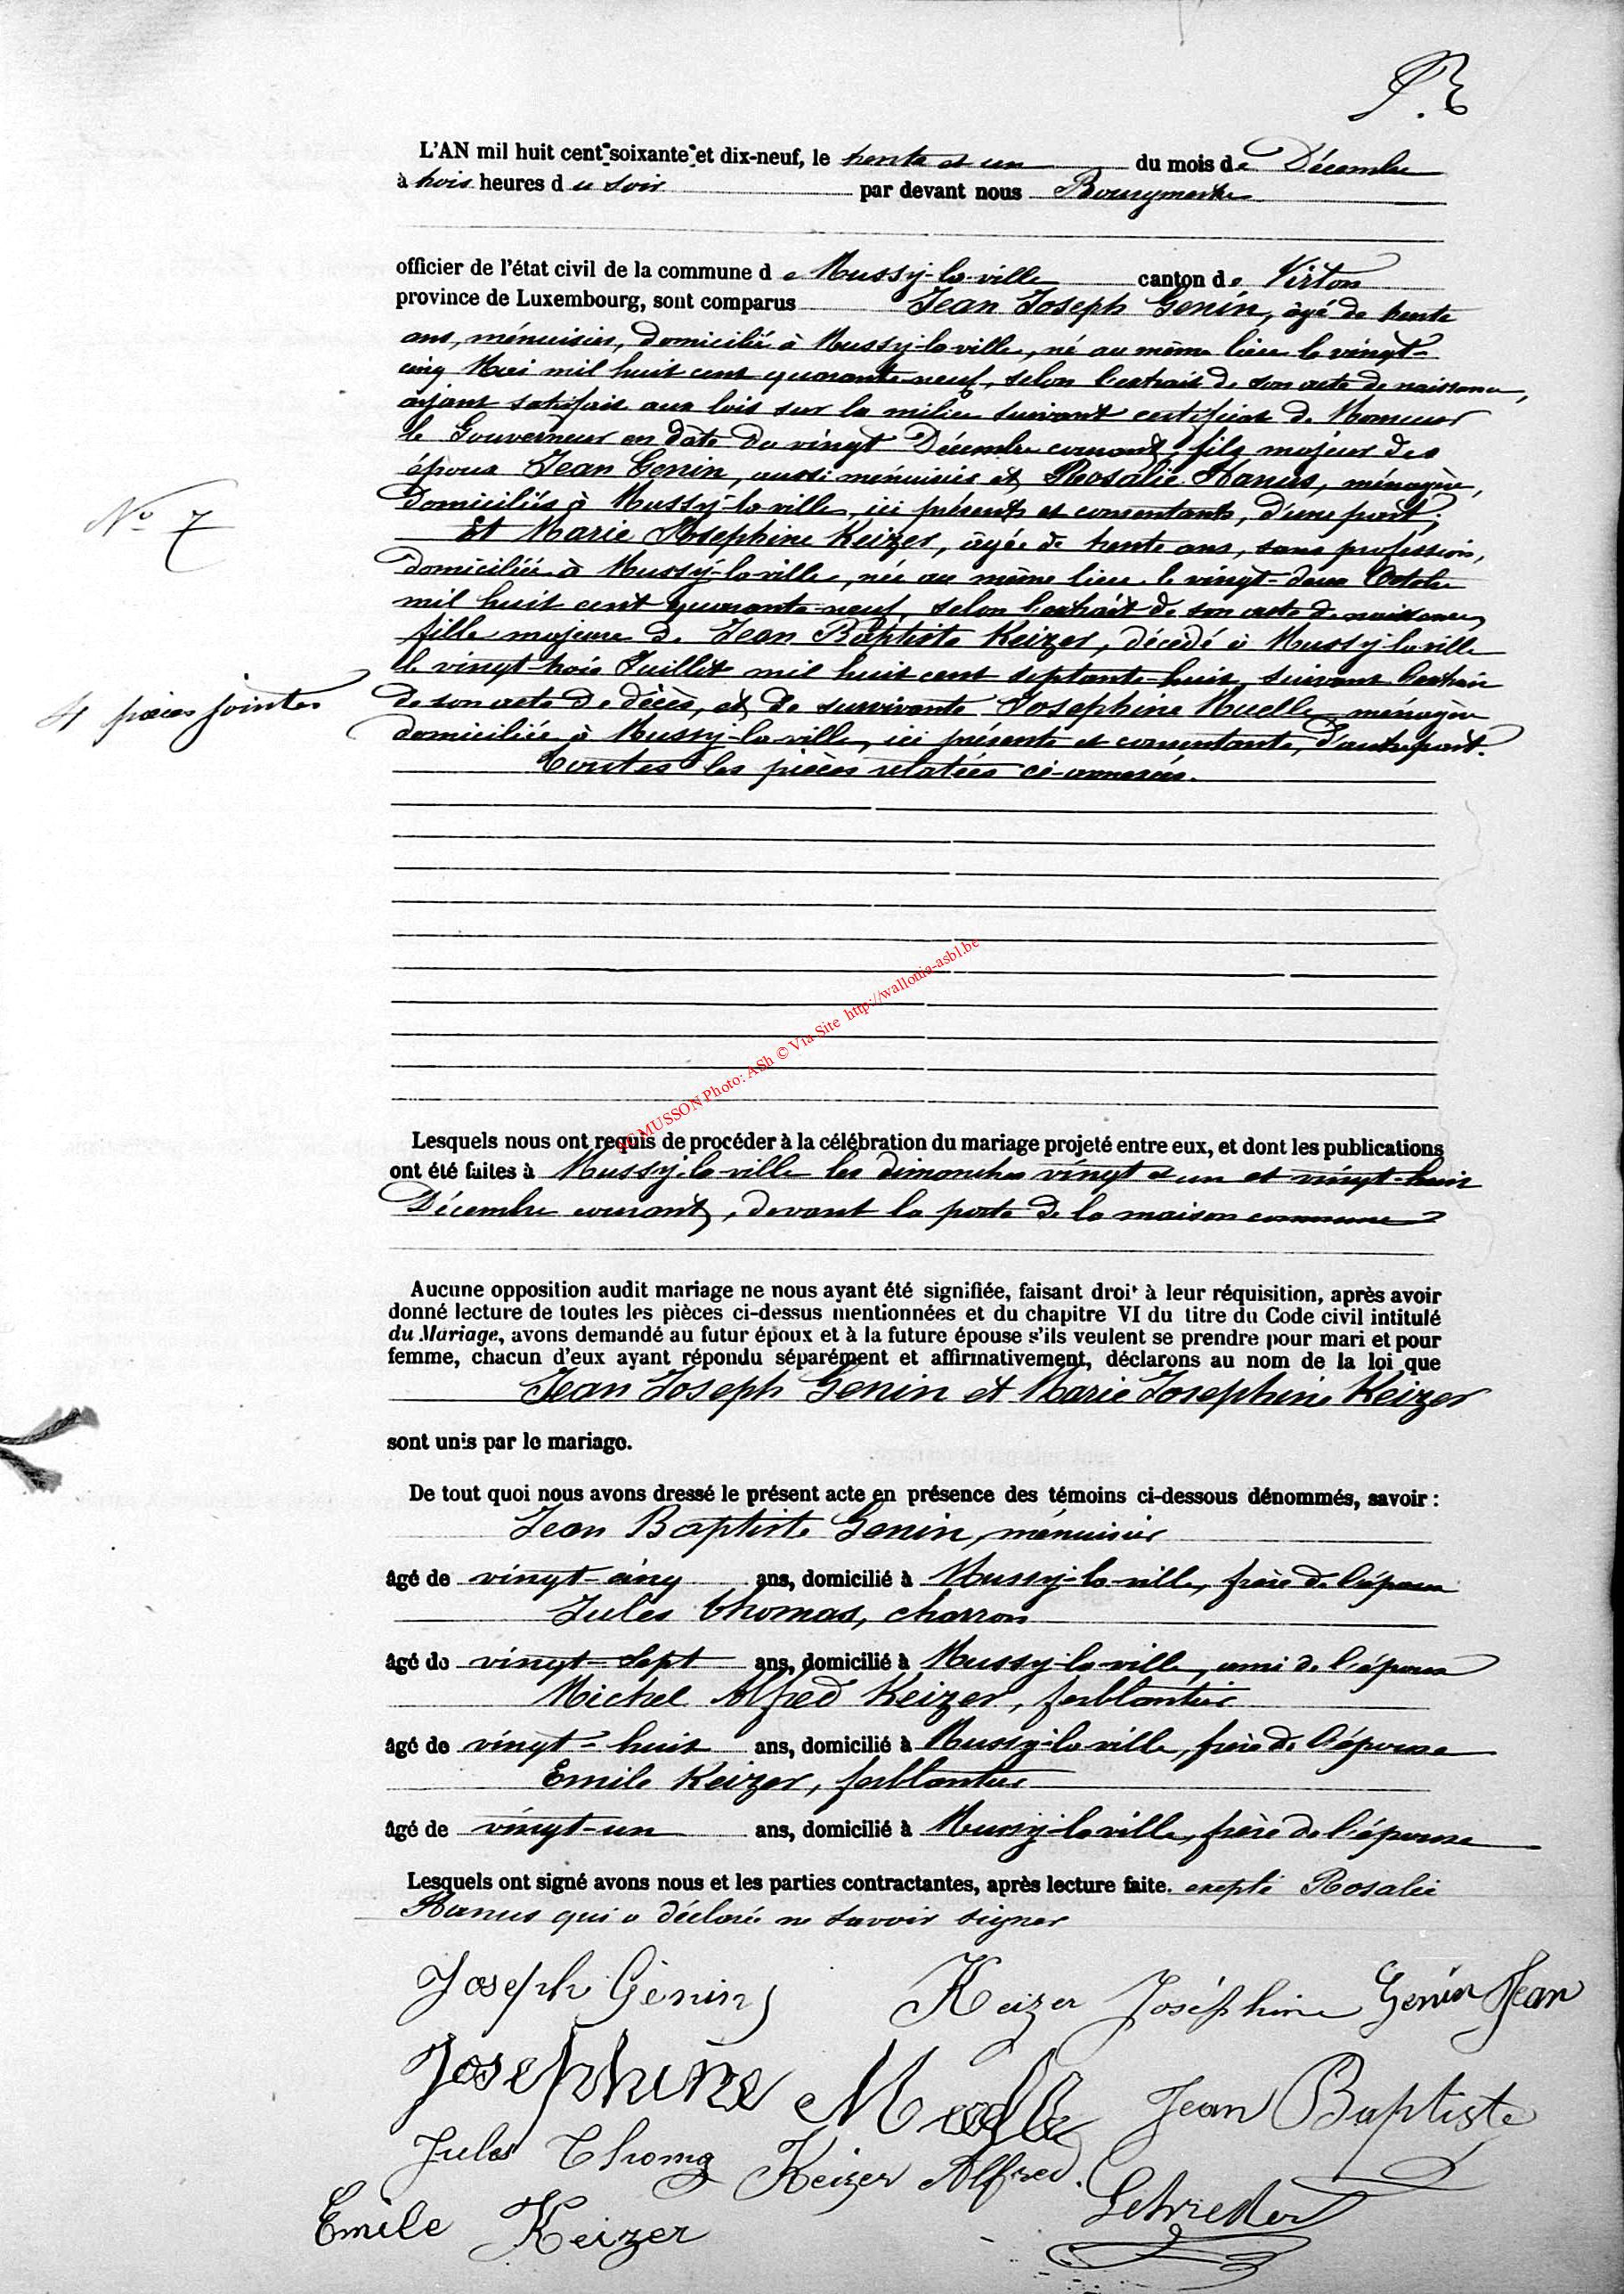 L'AN mil huit cent soixante et dix-neuf, le trente et un du mois de Décembre
à trois heures du soir par devant nous Bourgmestre
officier de l'état civil de la commune de Mussy-la-ville canton de Virton
province de Luxembourg, sont comparus Jean Joseph Genin, âgé de trente
ans, ménuisier, domicilié à Mussy-la-ville, né au même lieu le vingt-
cinq Mai mil huit cent quarante-neuf, selon l'extrait de son acte de naissance,
ayant satisfait aux lois sur la milice suivant certificat de Monsieur
le Gouverneur en date du vingt Décembre courant, fils majeur des
époux Jean Genin, aussi ménuisier et Rosalie Hanus, ménagère,
domiciliés à Mussy-la-ville, ici présents et consentants, d'une part;
Et Marie Josephine Keizer, âgée de trente ans, sans profession,
N° 7
domiciliée à Mussy-la-ville, née au même lieu le vingt-deux Octobre
mil huit cent quarante-neuf, selon l'extrait de son acte de naissance,
fille majeure de Jean Baptiste Keizer, décédé à Mussy-la-ville
le vingt-trois Juillet mil huit cent septante-huit, suivant l'extrait
4 pièces jointes
de son acte de décès, et de survivante Josephine Muelle, ménagère
domiciliée à Mussy-la-ville, ici présente et consentante, d'autre part.
Toutes les pièces relatées ci-annexées.
AC MUSSON Photo: ASh © Via Site http://wallonia-asbl.be
Lesquels nous ont requis de procéder à la célébration du mariage projeté entre eux, et dont les publications
ont été faites à Mussy-la-ville les dimanches vingt et un et vingt-huit
Décembre courant, devant la porte de la maison commune
Aucune opposition audit mariage ne nous ayant été signifiée, faisant droit à leur réquisition, après avoir
donné lecture de toutes les pièces ci-dessus mentionnées et du chapitre VI du titre du Code civil intitulé
du Mariage, avons demandé au futur époux et à la future épouse s'ils veulent se prendre pour mari et pour
femme, chacun d'eux ayant répondu séparément et affirmativement, déclarons au nom de la loi que
Jean Joseph Genin et Marie Josephine Keizer
sont unis par le mariage.
De tout quoi nous avons dressé le présent acte en présence des témoins ci-dessous dénommés, savoir :
Jean Baptiste Genin, ménuisier
âgé de vingt-cinq ans, domicilié à Mussy-la-ville, frère de l'époux
Jules Thomas, charron
âgé de vingt-sept ans, domicilié à Mussy-la-ville, ami de l'époux
Michel Alfred Keizer, ferblantier
âgé de vingt-huit ans, domicilié à Mussy-la-ville, frère de l'épouse
Emile Keizer, ferblantier
âgé de vingt-un ans, domicilié à Mussy-la-ville, frère de l'épouse
Lesquels ont signé avons nous et les parties contractantes, après lecture faite. excepté Rosalie
Hanus qui a déclaré ne savoir signer
Joseph Génin Keizer Joséphine Genin Jean
Josephine Muelle Jean Baptiste
Jules Thomas Keizer Alfred.
Emile Keizer